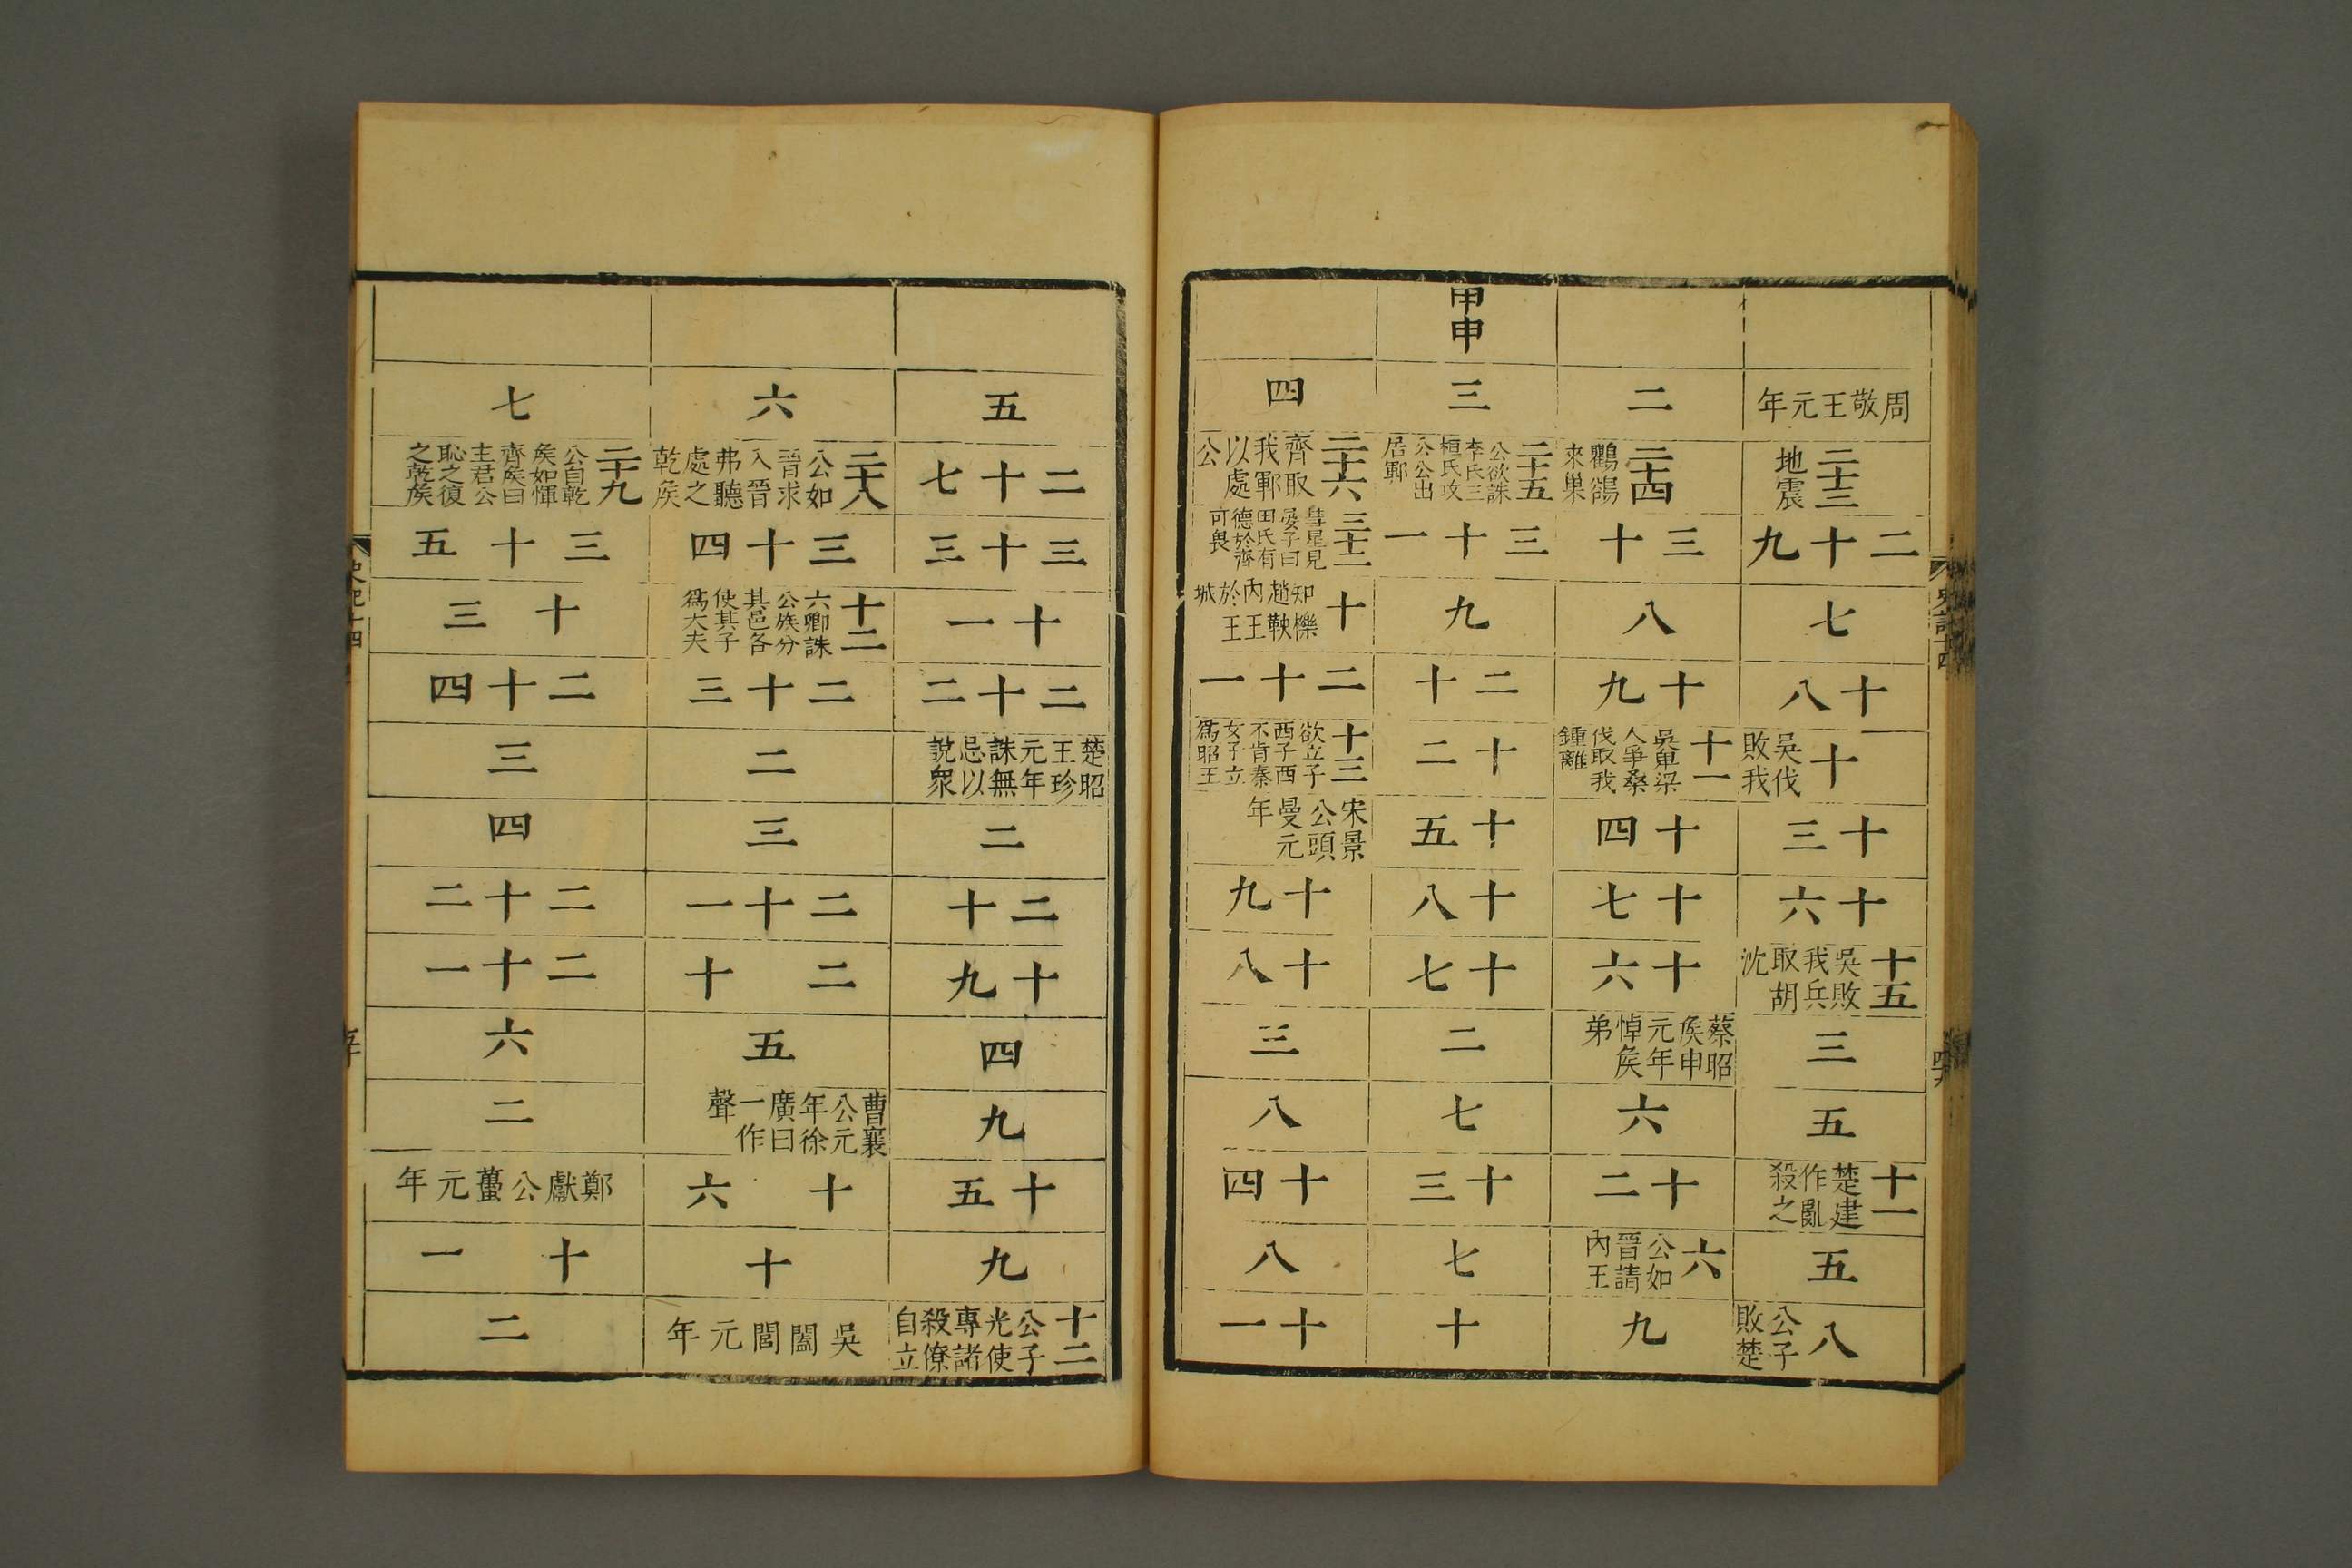 周敬王元年
二十三 地震
二十九
七
十八
十 吳伐敗我
十三
十六
十五 吳敗我兵取胡沈
三
五
十一 楚建作亂殺之
五
八 公子敗楚
二
二十四 鸜鵒來巢
三十
八
十九
十一 吳卑梁人爭桑伐取我鍾離
十四
十七
十六
蔡昭侯申元年悼侯弟
六
十二
六 公如晉請內王
九
甲申
三
二十五 公欲誅季氏三桓氏攻公公出居鄆
三十一
九
二十
十二
十五
十八
十七
二
七
十三
七
十
四
二十六 齊取我鄆以處公
三十二 彗星見晏子曰田氏有德於齊可畏
十 知櫟趙鞅內王於王城
二十一
十三 欲立子西子西不肯秦女子立爲昭王
宋景公頭曼元年
十九
十八
三
八
十四
八
十一
五
二十七
三十三
十一
二十二
楚昭王珍元年誅無忌以說衆
二
二十
十九
四
九
十五
九
十二 公子光使專諸殺僚自立
六
二十八 公如晉求入晉弗聽處之乾侯
三十四
十二 六卿誅公族分其邑各使其子爲大夫
二十三
二
三
二十一
二十
五
曹襄公元年徐廣曰一作聲
十六
十
吳闔閭元年
七
二十九 公自乾侯如惲齊侯曰主君公恥之復之乾侯
三十五
十三
二十四
三
四
二十二
二十一
六
二
鄭獻公蠆元年
十一
二